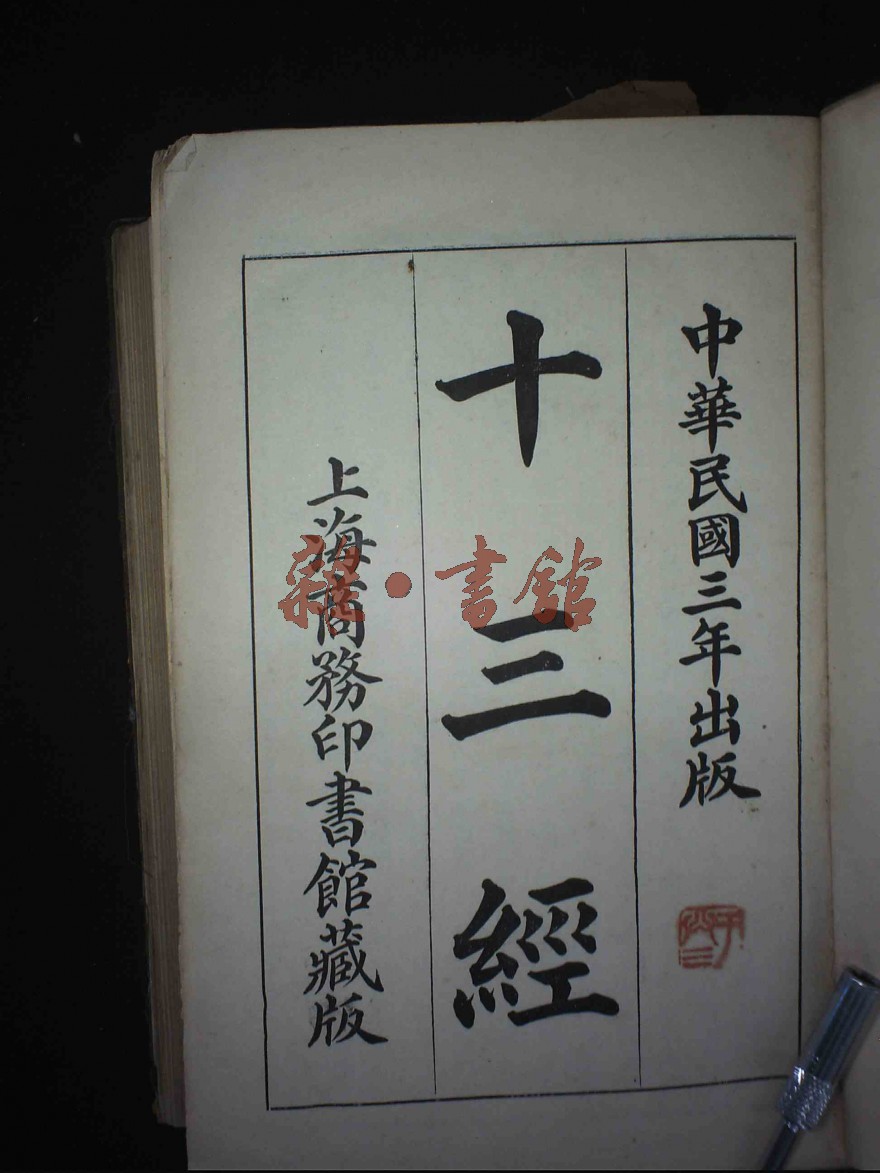 中華民國三年出版
十三經
上海商務印書館藏版
雜·書館